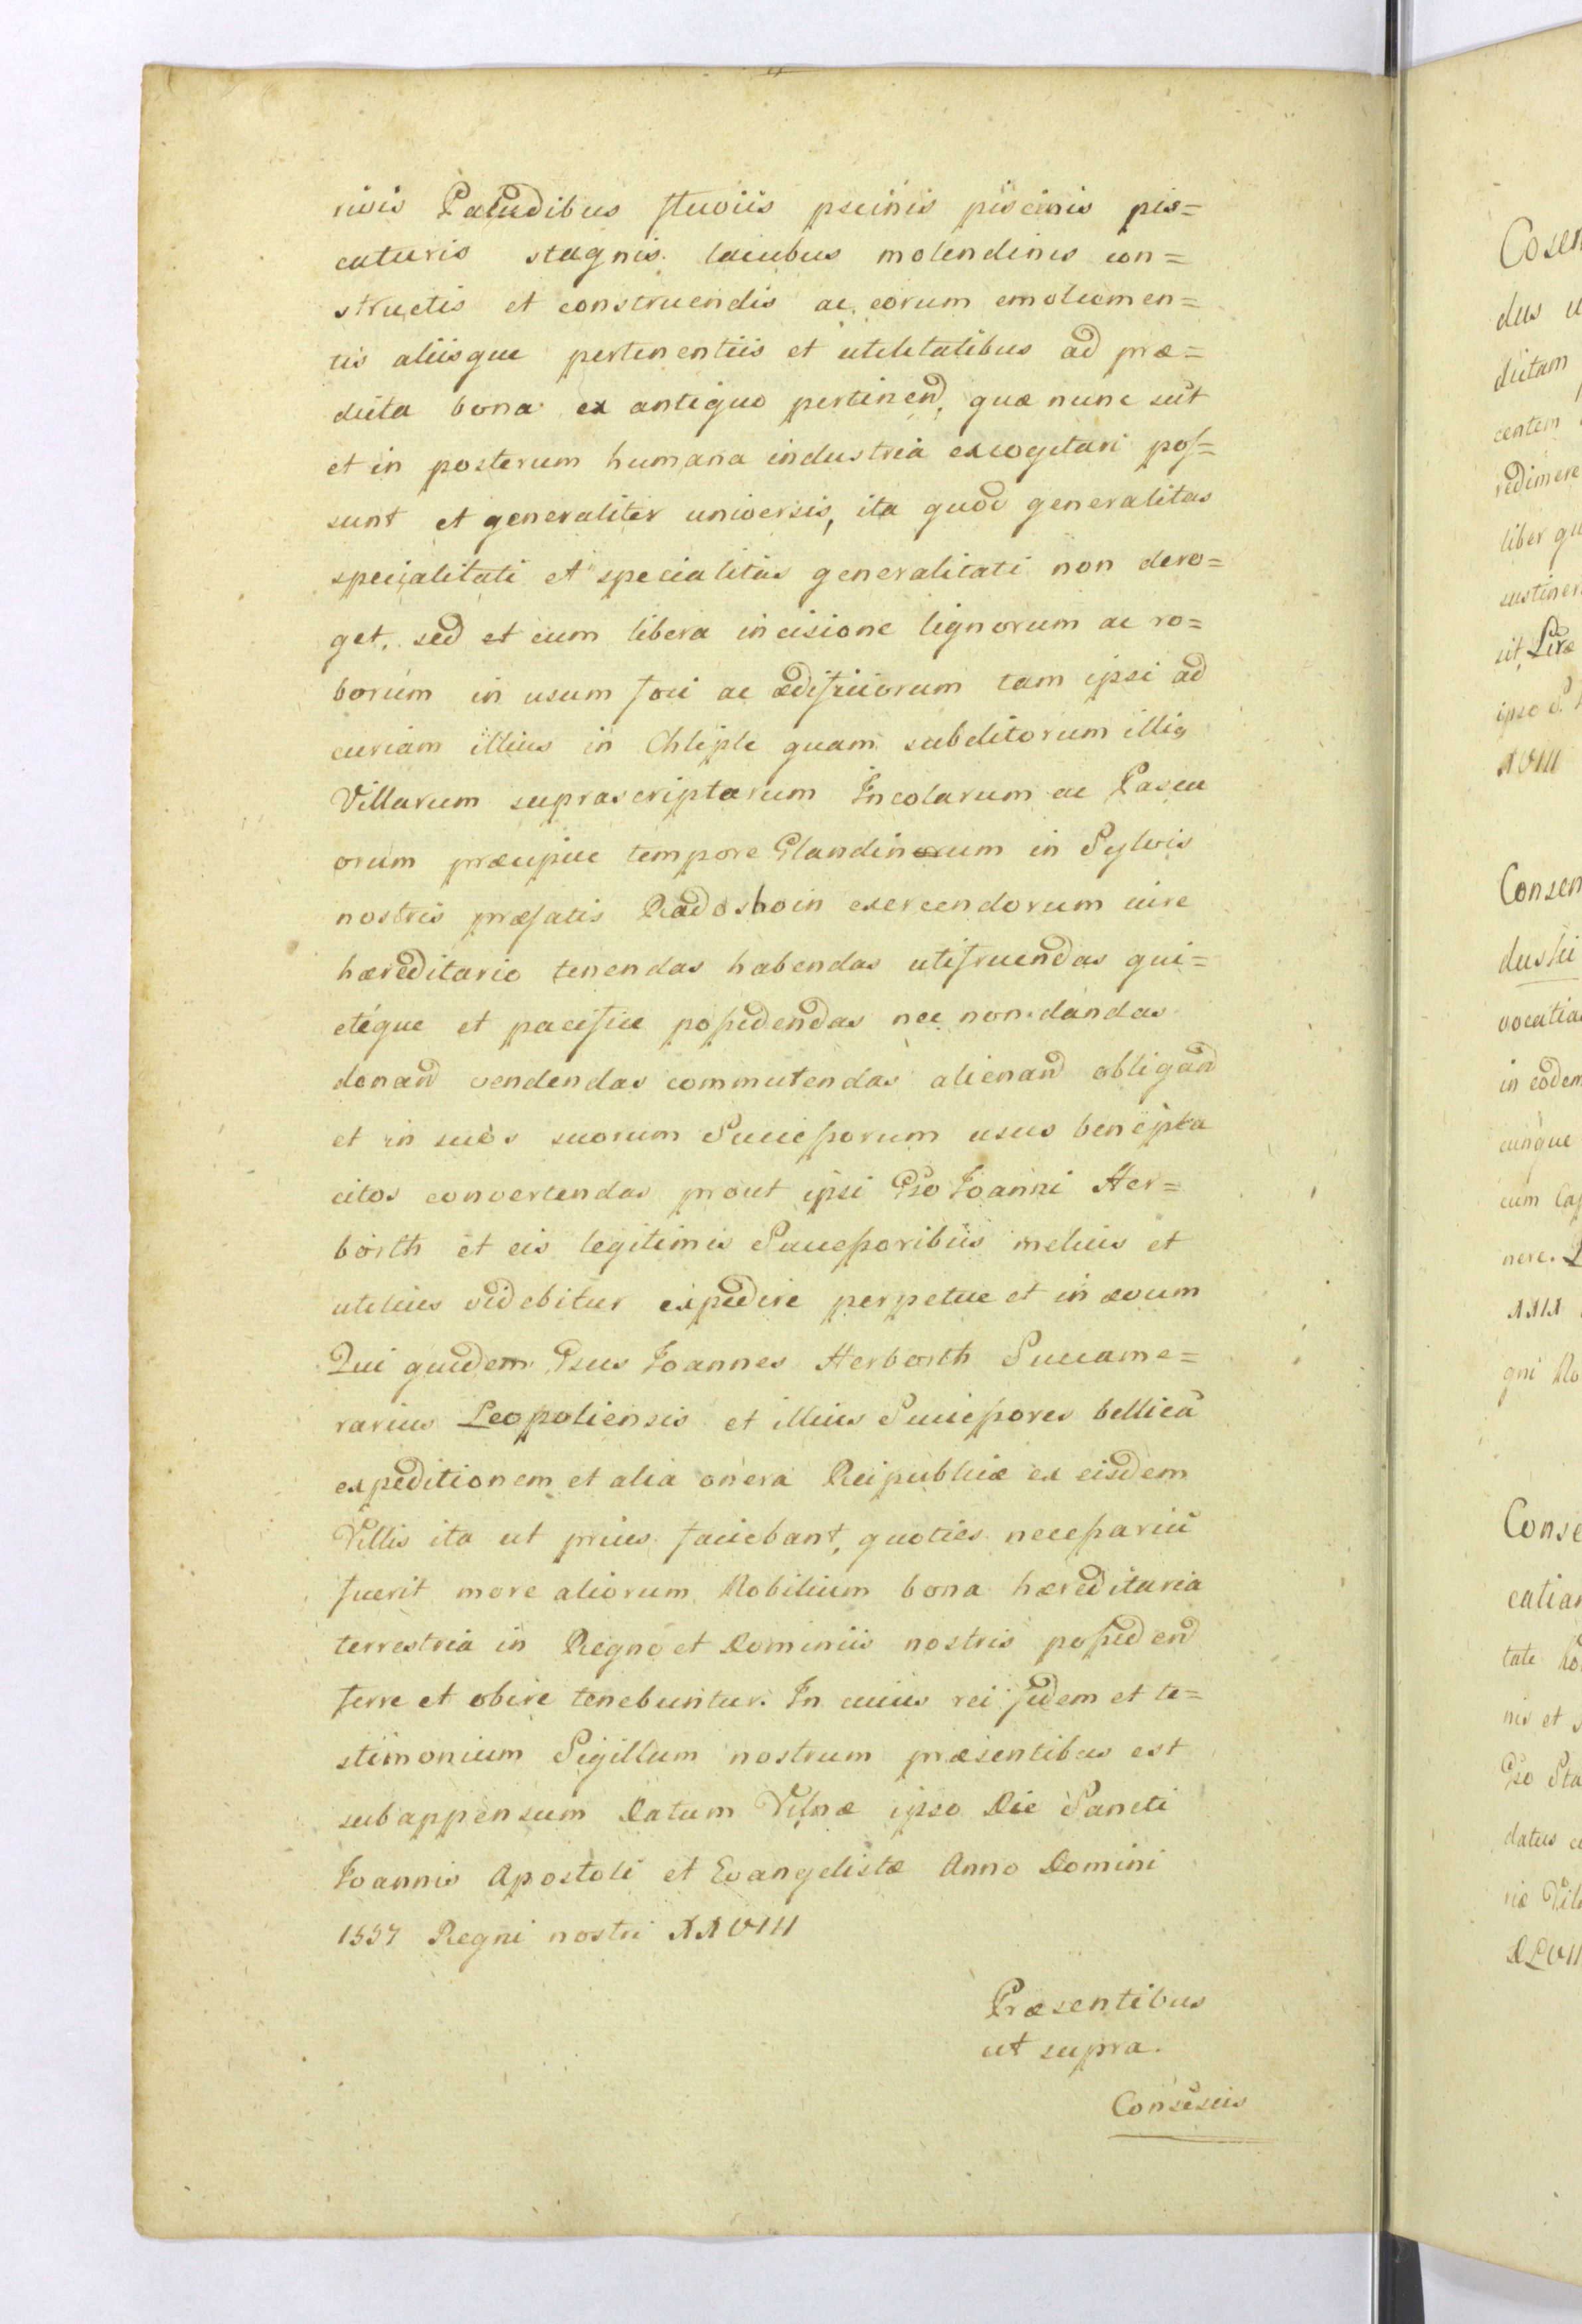 rivis Paludibus fluviis pscinis piscinis pis=
caturis stagnis lacubus molendinis con=
structis et construendis ac eorum emolumen=
tis aliisque pertinentiis et utilitatibus ad præ=
dicta bona ex antiquo pertinend, quæ nunc sūt
et in posterum humana industria excogitari pos=
sunt et generaliter universis, ita quod generalitas
specialitati et specialitas generalitati non dero=
get, sed et cum libera incisione lignorum ac ro=
borum in usum foci ac ædificiorum tam ipsi ad
curiam illius in Chliple quam subditorum illiq
Villarum suprascriptarum Incolarum ac Pascu
orum præcipue tempore Glandinorum in Sylvis
nostris præfatis Radoshoin exercendorum iure
hæreditario tenendas habendas utifruendas qui=
etéque et pacifice possidendas nec non dandas
donand vendendas commutendas alienand obligand
et in suos suorum Successorum usus benepla
citos convertendas prout ipsi Gso Joanni Her=
borth et eis legitimis Successoribus melius et
utilius videbitur expedire perpetue et in ævum
Qui quidem Gsus Joannes Herborth Succame=
rarius Leopoliensis et illius Successores bellicā
expeditionem et alia onera Reipublicæ ex eisdem
Villis ita ut prius faciebant, quoties necessariū
fuerit more aliorum Nobilium bona hæreditaria
terrestria in Regno et Dominiis nostris possidend
ferre et obire tenebuntur. In cuius rei fidem et te=
stimonium Sigillum nostrum præsentibus est
subappensum Datum Vilnæ ipso Die Sancti
Joannis Apostoli et Evangelistæ Anno Domini
1557 Regni nostri XXVIII
Præsentibus
ut supra.
Consēsus
dus
dictam
redimere
liber
ipso
XVIII
in eodem
cunque
cum
nere.
XXIX
gni
tate
nis et
Gso Sta
datus